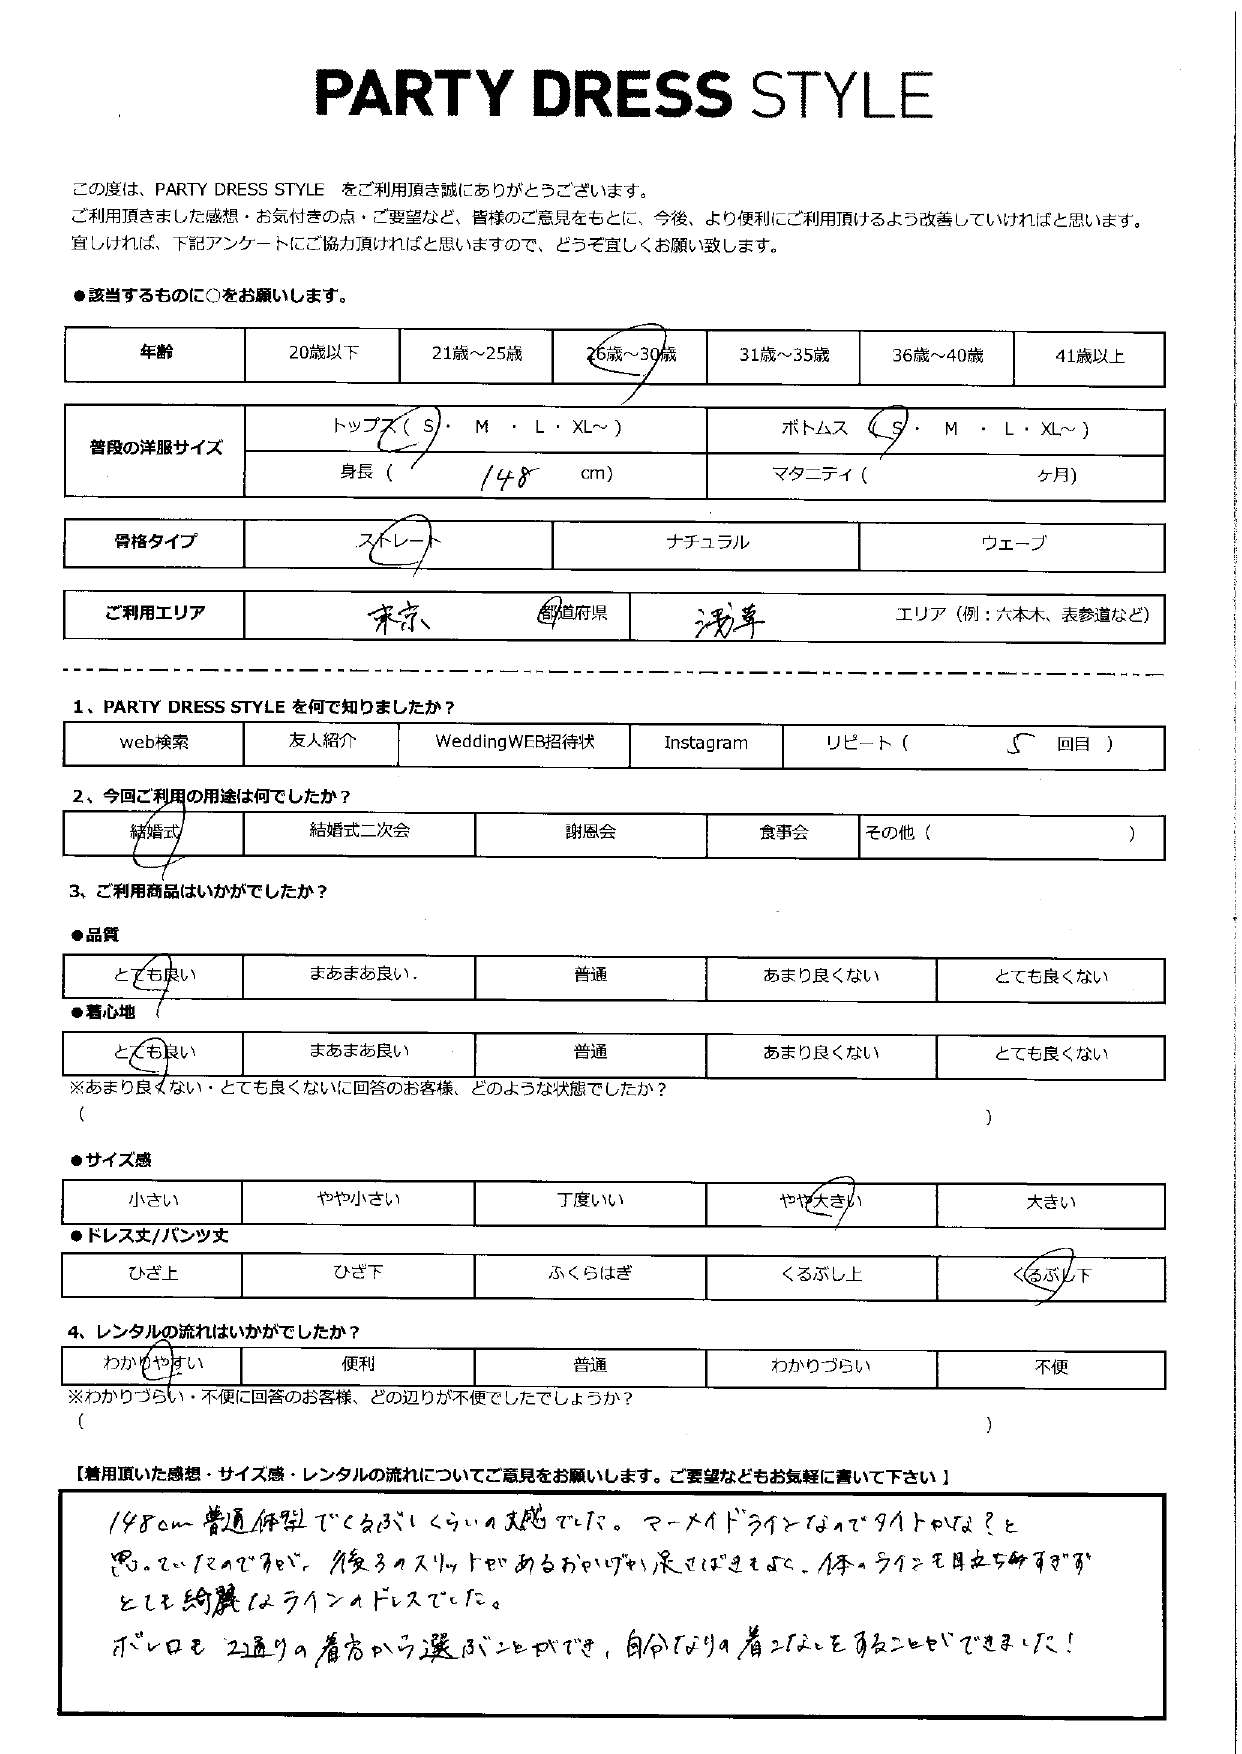 PARTY DRESS STYLE
この度は、PARTY DRESS STYLE をご利用頂き誠にありがとうございます。
ご利用頂きました感想・お気付きの点・ご要望など、皆様のご意見をもとに、今後、より便利にご利用頂けるよう改善していければと思います。
宜しければ、下記アンケートにご協力頂ければと思いますので、どうぞ宜しくお願い致します。
●該当するものに○をお願いします。
年齢 20歳以下 21歳～25歳 26歳～30歳 31歳～35歳 36歳～40歳 41歳以上
普段の洋服サイズ トップス( S ・ M ・ L ・ XL～ ) ボトムス ( S ・ M ・ L ・ XL～ )
身長 ( 148 cm) マタニティ ( ケ月)
骨格タイプ ストレート ナチュラル ウェーブ
ご利用エリア 東京 都道府県 浅草 エリア（例：六本木、表参道など）
1、PARTY DRESS STYLE を何で知りましたか？
web検索 友人紹介 WeddingWEB招待状 Instagram リピート ( 5 回目 )
2、今回ご利用の用途は何でしたか？
結婚式 結婚式二次会 謝恩会 食事会 その他 ( )
3、ご利用商品はいかがでしたか？
●品質
とても良い まあまあ良い 普通 あまり良くない とても良くない
●着心地
とても良い まあまあ良い 普通 あまり良くない とても良くない
※あまり良くない・とても良くないに回答のお客様、どのような状態でしたか？
( )
●サイズ感
小さい やや小さい 丁度いい やや大きい 大きい
●ドレス丈/パンツ丈
ひざ上 ひざ下 ふくらはぎ くるぶし上 くるぶし下
4、レンタルの流れはいかがでしたか？
わかりやすい 便利 普通 わかりづらい 不便
※わかりづらい・不便に回答のお客様、どの辺りが不便でしたでしょうか？
( )
【着用頂いた感想・サイズ感・レンタルの流れについてご意見をお願いします。ご要望などもお気軽に書いて下さい 】
148cm 普通体型でくるぶしくらいの丈感でした。マーメイドラインなのでタイトかな？と
思っていたのですが、後ろのスリットがあるおかげか足さばきもよく、体のラインも目立ちすぎず
とても綺麗なラインのドレスでした。
ボレロも 2通りの着方から選ぶことができ、自分なりの着こなしをすることができました！